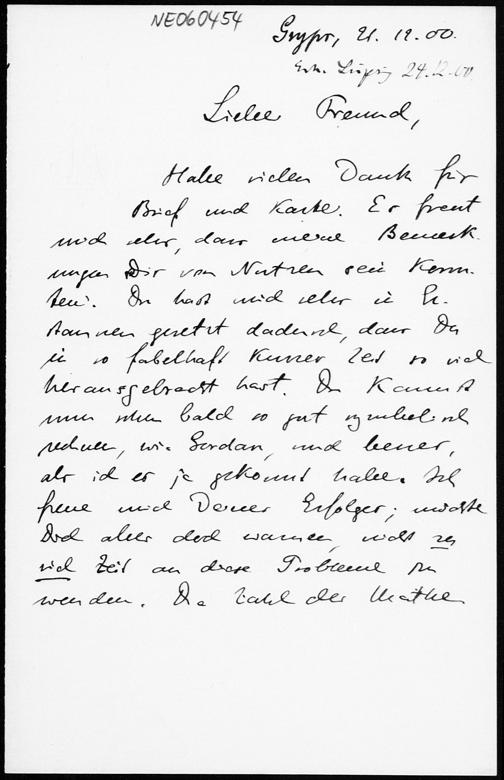 NE060454
Grypr, 21. 12. 00.
Erh. Leipzig 24.12.00.
Lieber Freund,
Habe vielen Dank für
Brief und Karte. Es freut
mich sehr, dass meine Bemerk-
ungen Dir von Nutzen sein konn-
ten. Du hast mich sehr in Er-
staunen gesetzt dadurch, dass Du
in so fabelhaft kurzer Zeit so viel
herausgebracht hast. Du kannst
nun schon bald so gut symbolisch
rechnen, wie Gordan, und besser,
als ich es je gekonnt habe. Ich
freue mich Deiner Erfolge; möchte
Dich aber doch warnen, nicht zu
viel Zeit an diese Probleme zu
wenden. Die Zahl der Mathe